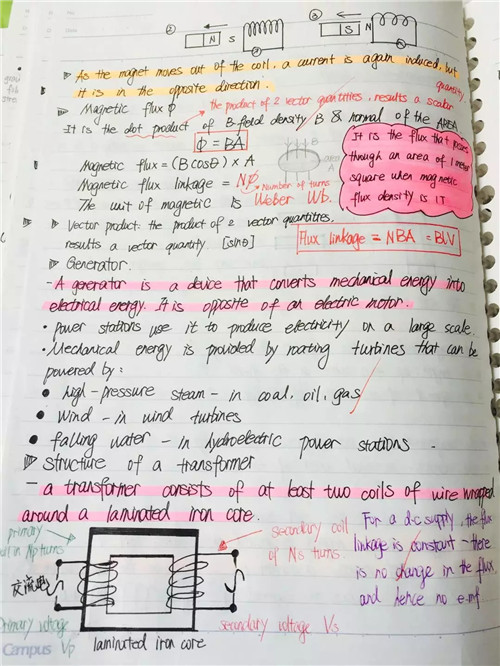 ②
N S
③
S N
▷ As the magnet moves out of the coil, a current is again induced, but
it is in the opposite direction.
▷ Magnetic flux ϕ
the product of 2 vector quantities, results a scalar
quantity.
It is the dot product of B-field density B & normal of the AREA
ϕ = BA
It is the flux that passes
through an area of 1 meter
square when magnetic
flux density is 1T
B
area
A
Magnetic flux = (B cosθ) × A
Magnetic flux linkage = Nϕ
Number of turns
The unit of magnetic is Weber Wb.
▷ Vector product: the product of 2 vector quantities,
results a vector quantity [sinθ]
Flux linkage = NBA = BLV
▷ Generator.
- A generator is a device that converts mechanical energy into
electrical energy. It is opposite of an electric motor.
• power stations use it to produce electricity on a large scale.
• Mechanical energy is provided by roating turbines that can be
powered by:
● high-pressure steam - in coal, oil, gas
● Wind - in wind turbines
● falling water - in hydroelectric power stations.
▷ structure of a transformer
- a transformer consists of at least two coils of wire wrapped
around a laminated iron core.
primary
coil in Np turns
交流电
primary voltage
Vp
secondary coil
of Ns turns
secondary voltage Vs
laminated iron core
For a d-c supply, the flux
linkage is constant - there
is no change in the flux
and hence no e-mf
Campus